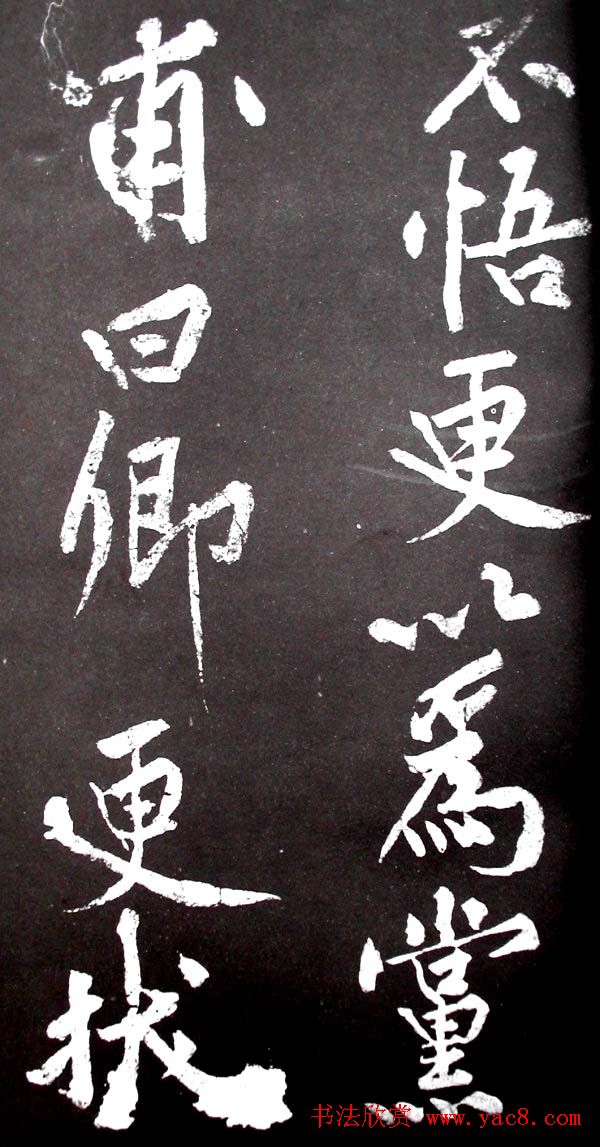 不悟更以為黨
甫曰卿更狀
书法欣赏 www.yac8.com